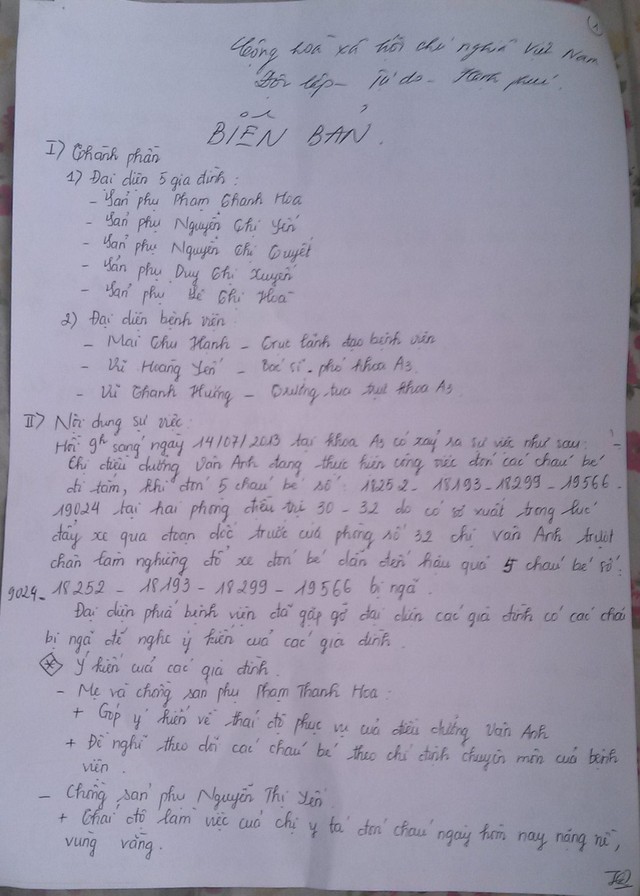 1
Cộng hoà xã hội chủ nghĩa Việt Nam
Độc lập - Tự do - Hạnh phúc.
BIÊN BẢN.
I) Thành phần
1) Đại diện 5 gia đình :
- Sản phụ Phạm Thanh Hoa
- Sản phụ Nguyễn Thị Yến
- Sản phụ Nguyễn Thị Quyết
- Sản phụ Duy Thị Xuyến
- Sản phụ Lê Thị Hoà
2) Đại diện bệnh viện
- Mai Thu Hạnh - Trực lãnh đạo bệnh viện
- Vũ Hoàng Yến - Bác sĩ - phó khoa A3
- Vũ Thanh Hường - Trưởng tua trực khoa A3
II) Nội dung sự việc :
Hồi 9h sáng ngày 14/07/2013 tại khoa A3 có xảy ra sự việc như sau : -
Chị điều dưỡng Vân Anh đang thực hiện công việc đón các cháu bé
đi tắm, khi đón 5 cháu bé số : 18252 - 18193 - 18299 - 19566 -
19024 tại hai phòng điều trị 30 - 32 do có sơ xuất trong lúc
đẩy xe qua đoạn dốc trước cửa phòng số 32 chị Vân Anh trượt
chân làm nghiêng đổ xe đón bé dẫn đến hậu quả 5 cháu bé số :
9024 - 18252 - 18193 - 18299 - 19566 bị ngã .
Đại diện phía bệnh viện đã gặp gỡ đại diện các gia đình có các cháu
bị ngã để nghe ý kiến của các gia đình .
* Ý kiến của các gia đình .
- Mẹ và chồng sản phụ Phạm Thanh Hoa :
+ Góp ý kiến về thái độ phục vụ của điều dưỡng Vân Anh
+ Đề nghị theo dõi các cháu bé theo chỉ định chuyên môn của bệnh
viện .
- Chồng sản phụ Nguyễn Thị Yến
+ Thái độ làm việc của chị y tá đón cháu ngày hôm nay nặng nề,
vùng vằng .